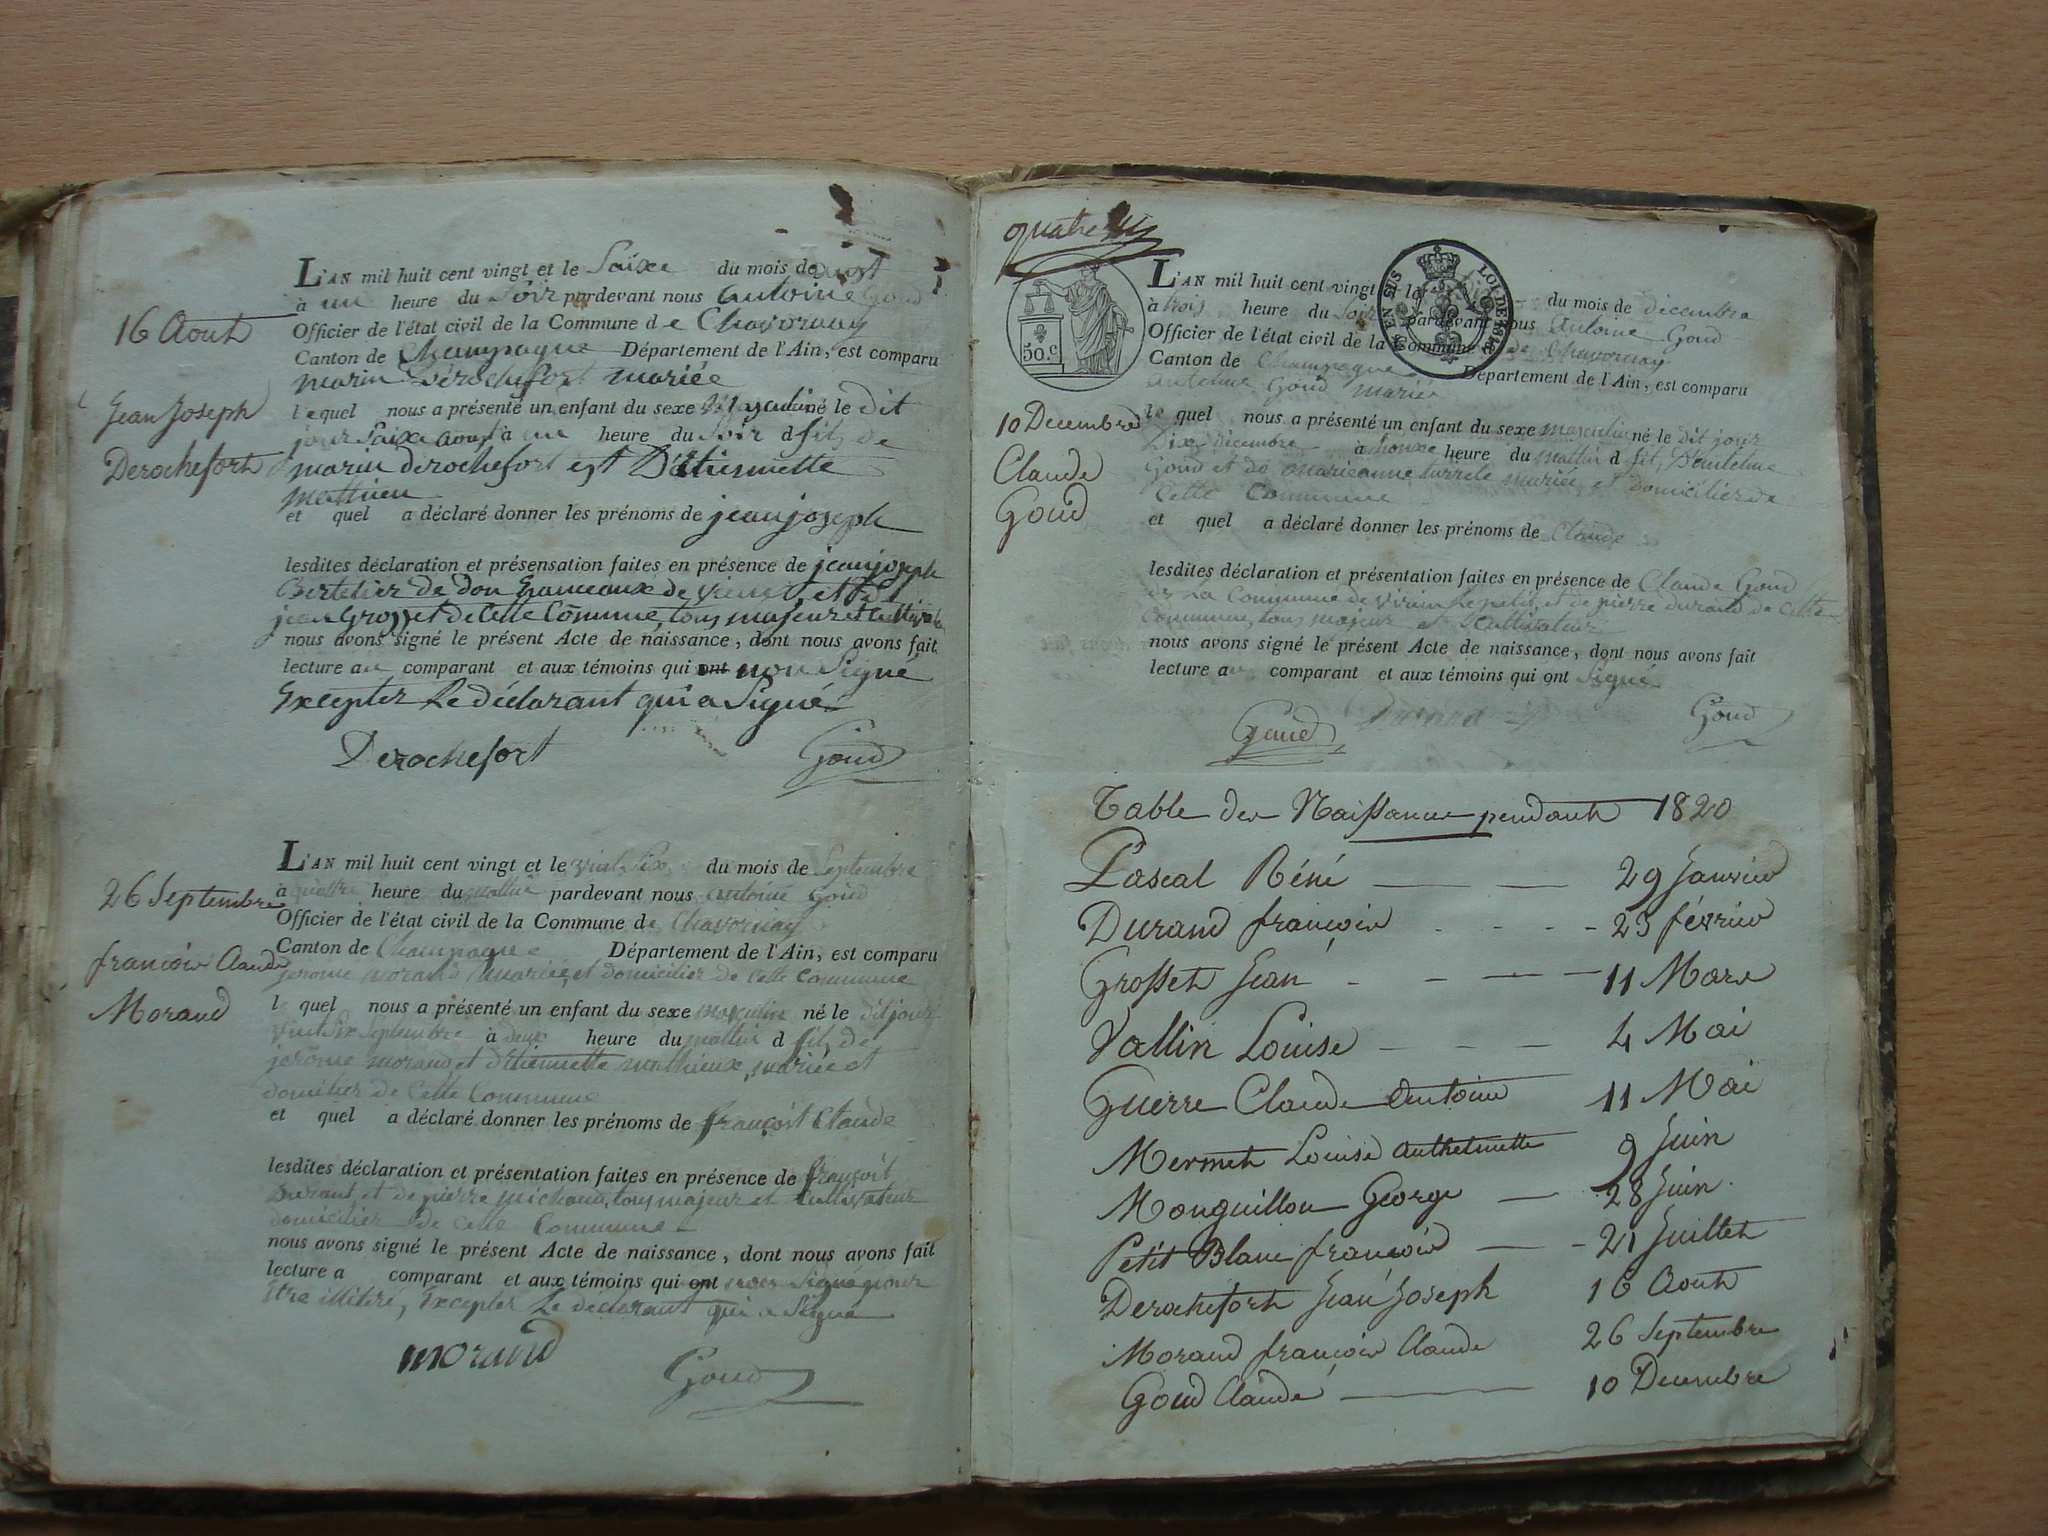 16 Aout
Jean Joseph
Derochefort
L'AN mil huit cent vingt et le Saixe du mois de aout
à un heure du Soir pardevant nous Antoine Goud
Officier de l'état civil de la Commune de Chavornay
Canton de Champagne Département de l'Ain, est comparu
marin Dérochefort mariée
lequel nous a présenté un enfant du sexe Masculin né le dit
jour Saixe aout à un heure du Soir d fils de
marin derochefort est D'étiennette
mathieu
et quel a déclaré donner les prénoms de jean joseph
lesdites déclaration et présensation faites en présence de jean joseph
Bertelier de don hameaux de vieu et de
jean Grosset de Cette Commune, tous majeur et Cultivateur
nous avons signé le présent Acte de naissance, dont nous avons fait
lecture au comparant et aux témoins qui ont non Signé
Excepter Le déclarant qui a Signé
Derochefort Goud
26 Septembre
francois Claude
Morand
L'AN mil huit cent vingt et le vint Six du mois de Septembre
à quattre heure du mattin pardevant nous antoine Goud
Officier de l'état civil de la Commune de Chavornay
Canton de Champagne Département de l'Ain, est comparu
jerome morand mariée, et domicilier de cette commune
le quel nous a présenté un enfant du sexe masculin né le dit jour
vint Six Septembre à deux heure du mattin d fils de
jerôme morand et d'étiennette mathieux, mariée et
domilier de Cette Commune
et quel a déclaré donner les prénoms de françoit Claude
lesdites déclaration et présentation faites en présence de françoit
Durant, et de pierre michaud, tous majeur et Cultivateur
domicilier de cette Commune
nous avons signé le présent Acte de naissance, dont nous avons fait
lecture a comparant et aux témoins qui ont non Signé pour
Etre illiteré, Excepter Le declarant qui a Signé
morand Goud
quatre
50.c
EN SUS LOI DE 1816
10 Decembre
Claude
Goud
L'AN mil huit cent vingt le dix du mois de décembre
à trois heure du Soir pardevant nous Antoine Goud
Officier de l'état civil de la Commune de Chavornay
Canton de Champagne Département de l'Ain, est comparu
Goud mariée
le quel nous a présenté un enfant du sexe masculin né le dit jour
Dix décembre à honxe heure du mattin d fils
Goud et de marieanne mariée et domicilier de
Cette Commune
et quel a déclaré donner les prénoms de Claude
lesdites déclaration et présentation faites en présence de Claude Goud
de La Commune de virieu le petit, et de pierre durand de Cette
Commune, tous majeur et Cultivateur
nous avons signé le présent Acte de naissance, dont nous avons fait
lecture au comparant et aux témoins qui ont Signé
Goud Durand Goud
Table des Naissances pendant 1820
Pascal Réné 29 Janvier
Durand francois 23 février
Grosset Jean 11 Mars
Vallin Louise 4 Mai
Guerre Claude Antoine 11 Mai
Mermet Louise Anthelmette 9 Juin
Monguillon George 28 Juin
Petit Blanc francois 21 Juillet
Derochefort Jean Joseph 16 Aout
Morand francois Claude 26 Septembre
Goud Claude 10 Decembre